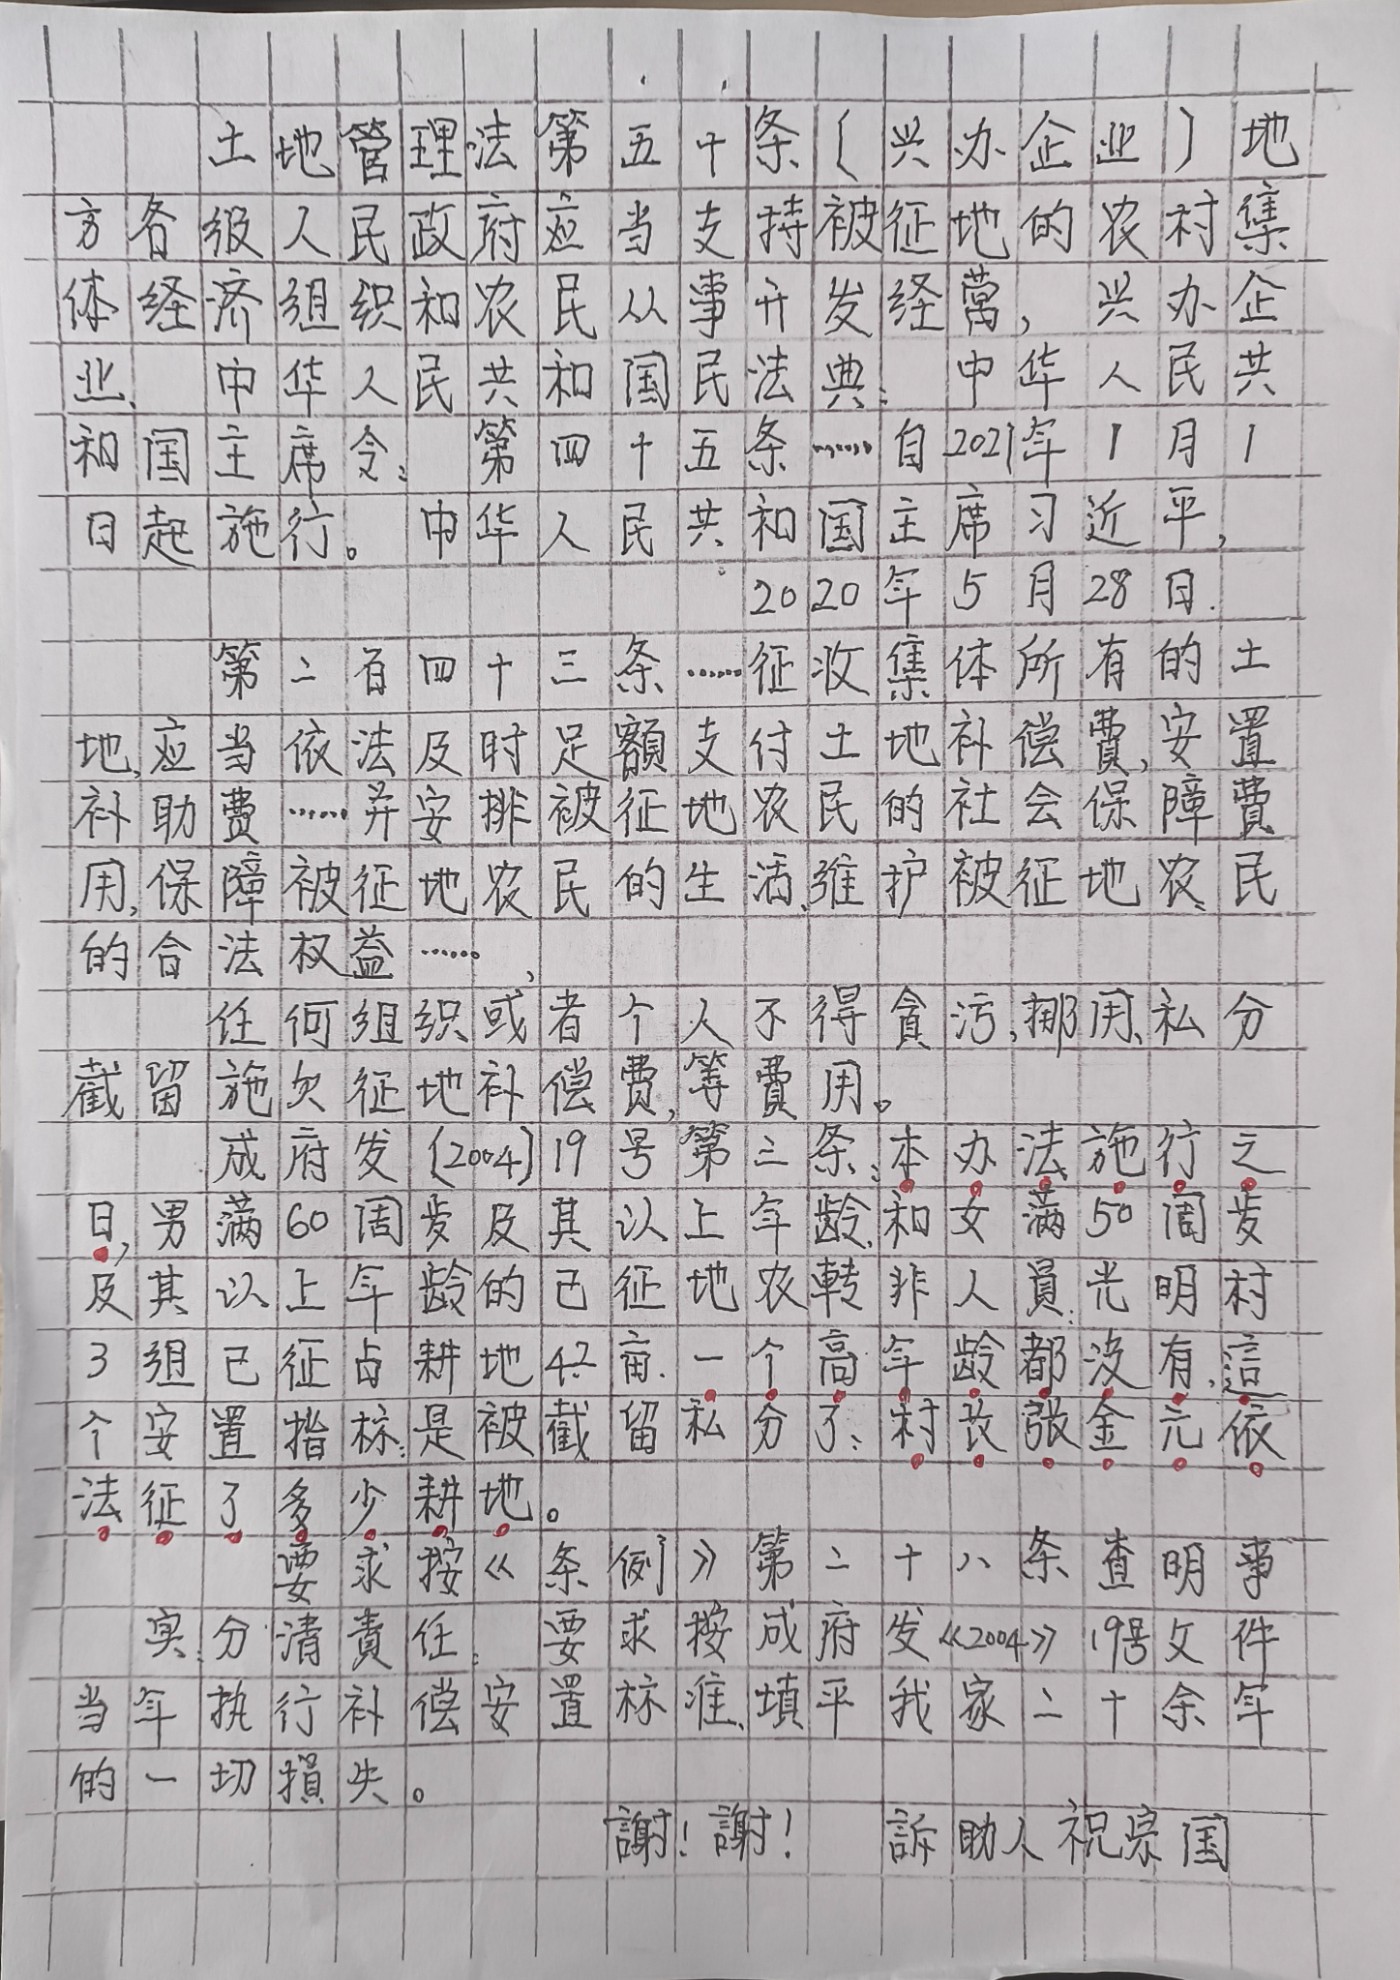 土地管理法第五十条(兴办企业)地
方各级人民政府应当支持被征地的农村集
体经济组织和农民从事开发经营,兴办企
业、中华人民共和国民法典:中华人民共
和国主席令:第四十五条……自2021年1月1
日起施行。中华人民共和国主席习近平,
2020年5月28日.
第二百四十三条……征收集体所有的土
地,应当依法及时足额支付土地补偿費,安置
补助费……并安排被征地农民的社会保障費
用,保障被征地农民的生活、维护被征地农民
的合法权益……,
任何组织或者个人不得貪污,挪用、私分
截留施欠征地补偿费,等費用。
成府发(2004)19号第三条:本办法施行之
日,男满60周岁及其以上年龄和女满50周岁
及其以上年龄的已征地农轉非人員:光明村
3组已征占耕地42亩.一个高年龄都没有,這
个安置指标:是被截留私分了:村长張金元依
法征了多少耕地。
要求按《条例》第二十八条查明事
实:分清責任:要求按成府发《2004》19号文件
当年执行补偿安置标准、填平我家二十余年
的一切損失。
謝!謝!訴助人祝宗国